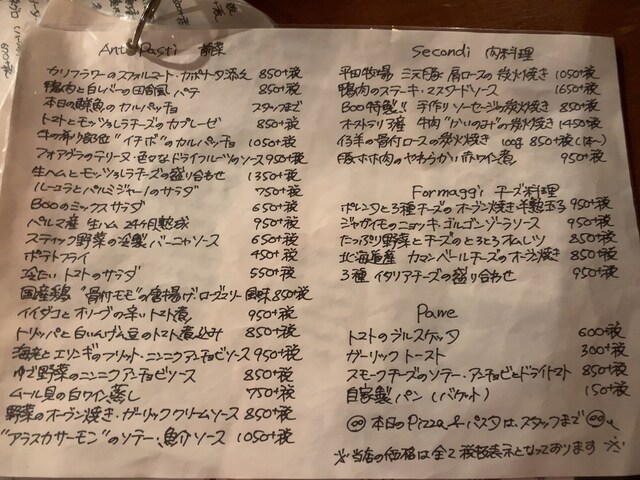 Anti Pasti 前菜
カリフラワーのスフォルマート・カポナータ添え 850+税
鴨肉と白レバーの田舎風パテ 850+税
本日の鮮魚のカルパッチョ スタッフまで
トマトとモッツァレラチーズのカプレーゼ 850+税
牛の希少部位"イチボ"のカルパッチョ 1050+税
フォアグラのテリーヌ・色々なドライフルーツのソース 950+税
生ハムとモッツァレラチーズの盛り合わせ 1350+税
ルーコラとパルミジャーノのサラダ 750+税
Booのミックスサラダ 650+税
パルマ産 生ハム 24ヶ月熟成 950+税
スティック野菜の冷製 バーニャソース 650+税
ポテトフライ 450+税
冷たいトマトのサラダ 550+税
国産鶏"骨付モモ"の唐揚げローズマリー風味 850+税
イイダコとオリーブの辛いトマト煮 950+税
トリッパと白いんげん豆のトマト煮込み 850+税
海老とエリンギのフリット・ニンニクアンチョビソース 950+税
ゆで野菜のニンニクアンチョビソース 850+税
ムール貝の白ワイン蒸し 750+税
野菜のオーブン焼き・ガーリッククリームソース 850+税
"アラスカサーモン"のソテー、魚介ソース 1050+税
Secondi 肉料理
平田牧場 三元豚 肩ロースの炭火焼き 1050+税
鴨肉のステーキ・マスタードソース 1650+税
Boo特製!! 手作りソーセージの炭火焼き 850+税
オーストラリア産 牛肉"かいのみ"の炭火焼き 1450+税
仔羊の骨付ロースの炭火焼 100g 850+税(1本〜)
豚ホホ肉のやわらかい赤ワイン煮 950+税
Formaggi チーズ料理
ポレンタと3種チーズのオーブン焼き 半熟玉子 950+税
ジャガイモのニョッキ・ゴルゴンゾーラソース 950+税
たっぷり野菜とチーズのとろとろオムレツ 850+税
北海道産 カマンベールチーズのオーブン焼き 850+税
3種 イタリアチーズの盛り合わせ 950+税
Pane
トマトのブルスケッタ 600+税
ガーリックトースト 300+税
スモークチーズのソテー・アンチョビとドライトマト 850+税
自家製パン(バケット) 150+税
本日のPizza & パスタは、スタッフまで
※当店の価格は全て税抜表示となっております※